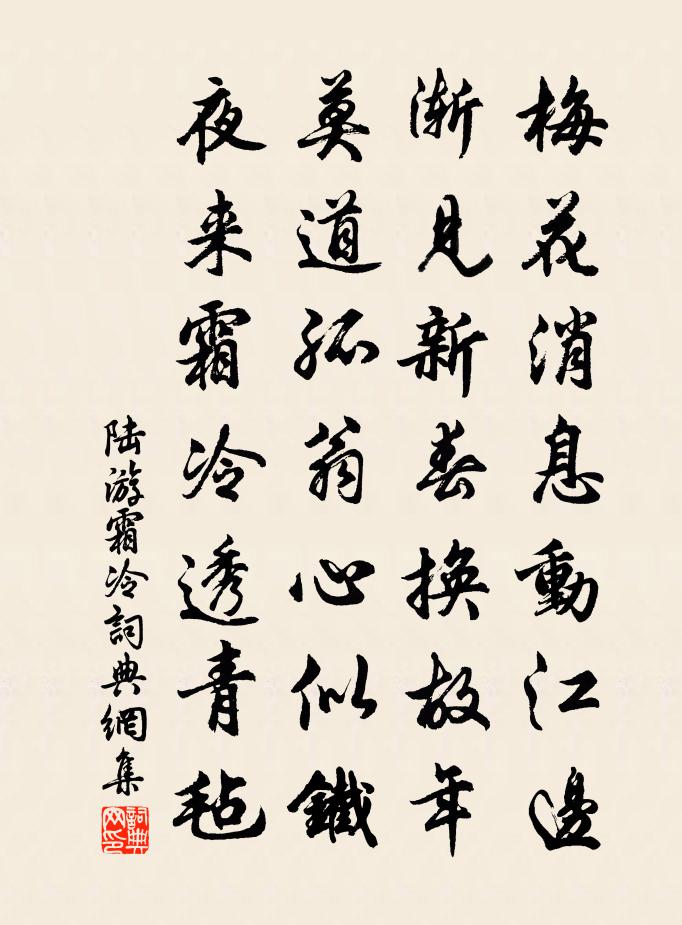 梅花消息動江邊
漸見新春換故年
莫道孤翁心似鐵
夜来霜冷透青氈
陆游霜冷詞典網集
詞典网印